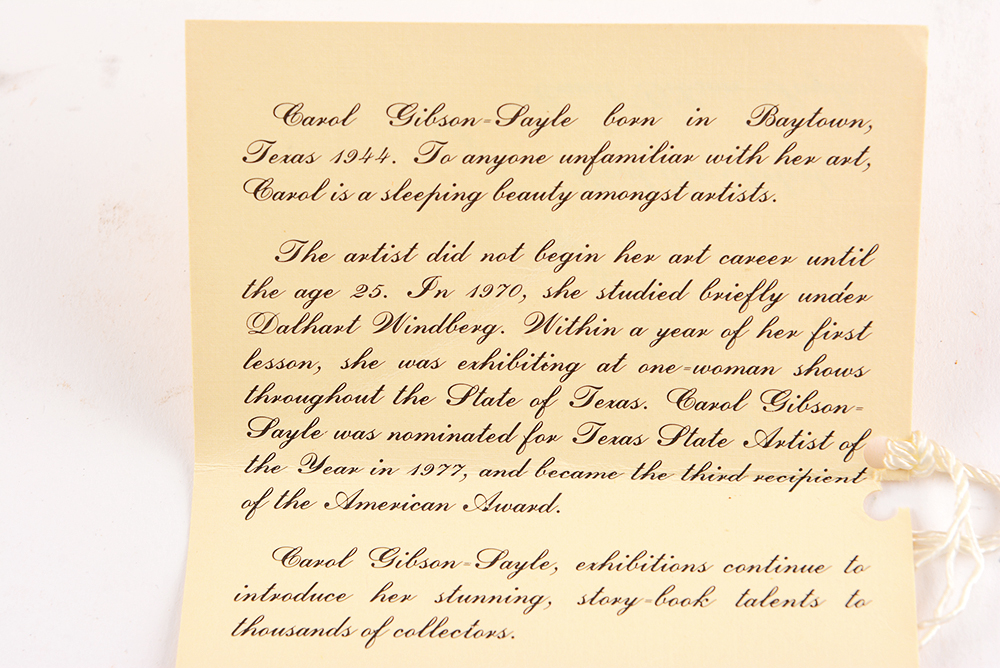 Carol Gibson-Sayle born in Baytown,
Texas 1944. To anyone unfamiliar with her art,
Carol is a sleeping beauty amongst artists.
The artist did not begin her art career until
the age 25. In 1970, she studied briefly under
Dalhart Windberg. Within a year of her first
lesson, she was exhibiting at one-woman shows
throughout the State of Texas. Carol Gibson-
Sayle was nominated for Texas State Artist of
the Year in 1977, and became the third recipient
of the American Award.
Carol Gibson-Sayle, exhibitions continue to
introduce her stunning, story-book talents to
thousands of collectors.